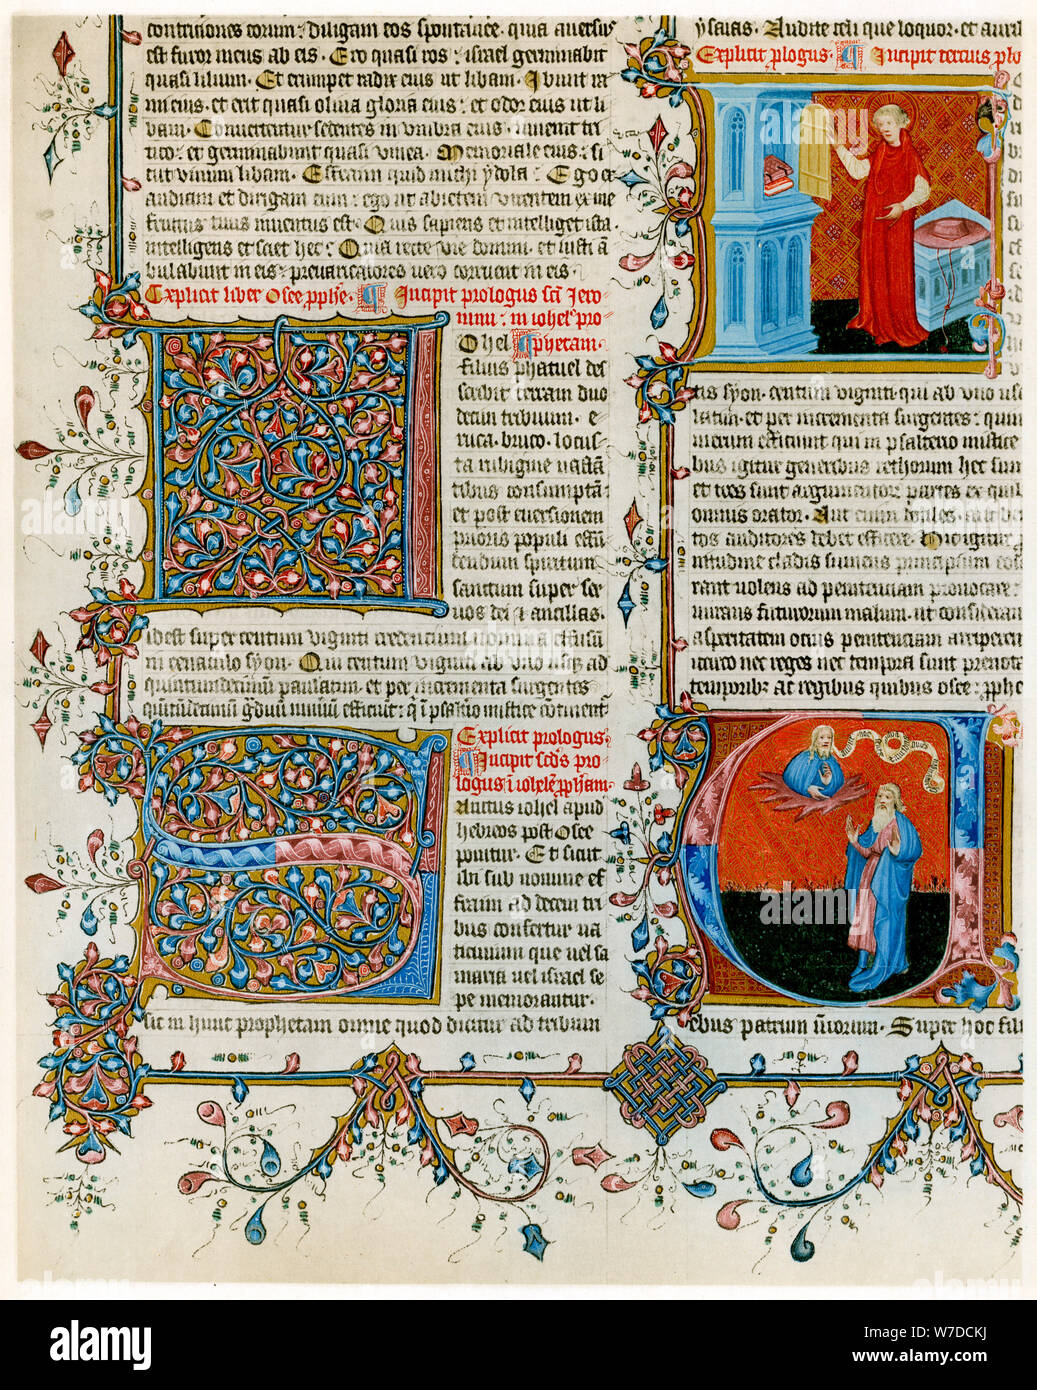 est furor meus ab eis. Ero quasi ros: israel germinabit
quasi lilium. Et erumpet radix eius ut libani. Ibunt ra
mi eius. et erit quasi oliva gloria eius: et odor eius ut li
bani. Convertentur sedentes in umbra eius. vivent tri
tico: et germinabunt quasi vinea. Memoriale eius: si
cut vinum libani. Effraim quid michi ydola: Ego ex
audiam et dirigam eum: ego ut abietem virentem ex me
fructus tuus inventus est. Quis sapiens et intelliget ista
intelligens et sciet hec: Quia recte vie domini. et iusti a
bulabunt in eis: prevaricatores vero corruent in eis.
Explicit liber Osee pphe. Incipit prologus sci Jero
nimi: in iohel pro
phetam.
Ohel
filius phatuel des
cribit terram duo
decim tribuum. e
ruca. bruco. locus
ta rubigine vastata
tibus consumpta:
et post eversionem
prioris populi effu
sendum spiritum
sanctum super ser
vos dei et ancillas.
id est super centum viginti credentium nomina effusu
in cenaculo syon. Qui centum viginti ab uno usq ad
quintumdecimum paulatim. et per incrementa surgentes
Explicit prologus.
Incipit scds pro
logus i iohele ppham.
Anctus iohel apud
hebreos post Osee
ponitur. Et sicut
ibi sub nomine ef
fraim ad decem tri
bus confertur va
ticinium que vel sa
maria vel israel se
pe memorantur.
sic in hunc prophetam omne quod dicitur ad tribum
ysaias. Audite celi que loquor. et auri
Explicit plogus. Incipit tercius plo
tis syon. centum viginti. qui ab uno us
latim. et per incrementa surgentes: quin
merum efficiunt qui in psalterio mistice
bus igitur generibus rethorum hec sunt
et tres sunt argumentor partes ex quib
omnis orator. Aut enim dociles. aut be
tos auditores debet efficere.
nitudine cladis sumens principium
rant volens ad penitenciam provocare:
asperitatem ocius penitenciam
ideirco nec reges nec tempora sunt prenota
temporibz ac regibus quibus osee: pphe
ebus patrum vestrorum. Super hoc fili
alamy
alamy
Image ID: W7DCKJ
www.alamy.com